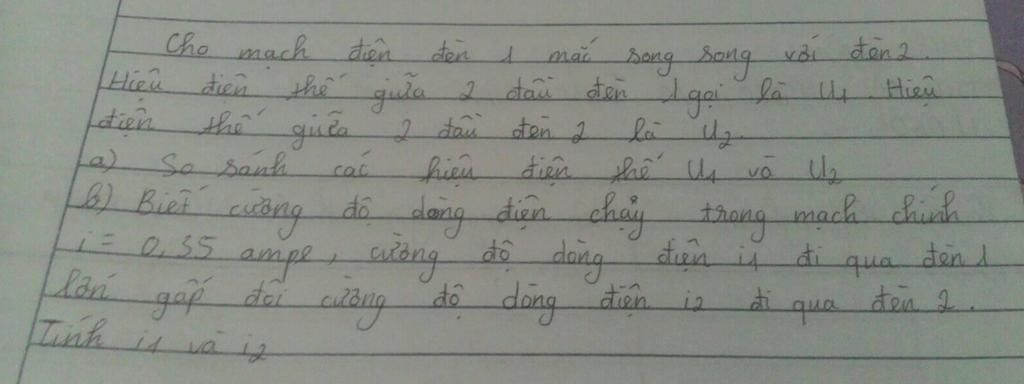 Cho mạch điện đèn 1 mắc song song với đèn 2.
Hiệu điện thế giữa 2 đầu đèn 1 gọi là U1. Hiệu
điện thế giữa 2 đầu đèn 2 là U2.
a) So sánh các hiệu điện thế U1 và U2
b) Biết cường độ dòng điện chạy trong mạch chính
i = 0,35 ampe, cường độ dòng điện i1 đi qua đèn 1
lớn gấp đôi cường độ dòng điện i2 đi qua đèn 2.
Tính i1 và i2